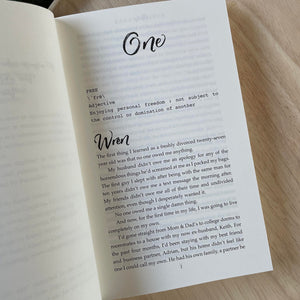 One
FREE
\ˈfrē\
Adjective
Enjoying personal freedom : not subject to
the control or domination of another
Wren
The first thing I learned as a freshly divorced twenty-seven
year old was that no one owed me anything.
My husband didn't owe me an apology for any of the
horrendous things he'd screamed at me as I packed my bags.
The first guy I slept with after being with the same man for
ten years didn't owe me a text message the morning after.
My friends didn't owe me all of their time and undivided
attention, even though I desperately wanted it.
No one owed me a single damn thing.
And now, for the first time in my life, I was going to live
completely on my own.
I'd gone straight from Mom & Dad's to college dorms to
roommates to a house with my now ex-husband, Keith. For
the past four months, I'd been staying with my best friend
and business partner, Adrian, but his home didn't feel like
one I could call my own. He had his own family, a partner he
1